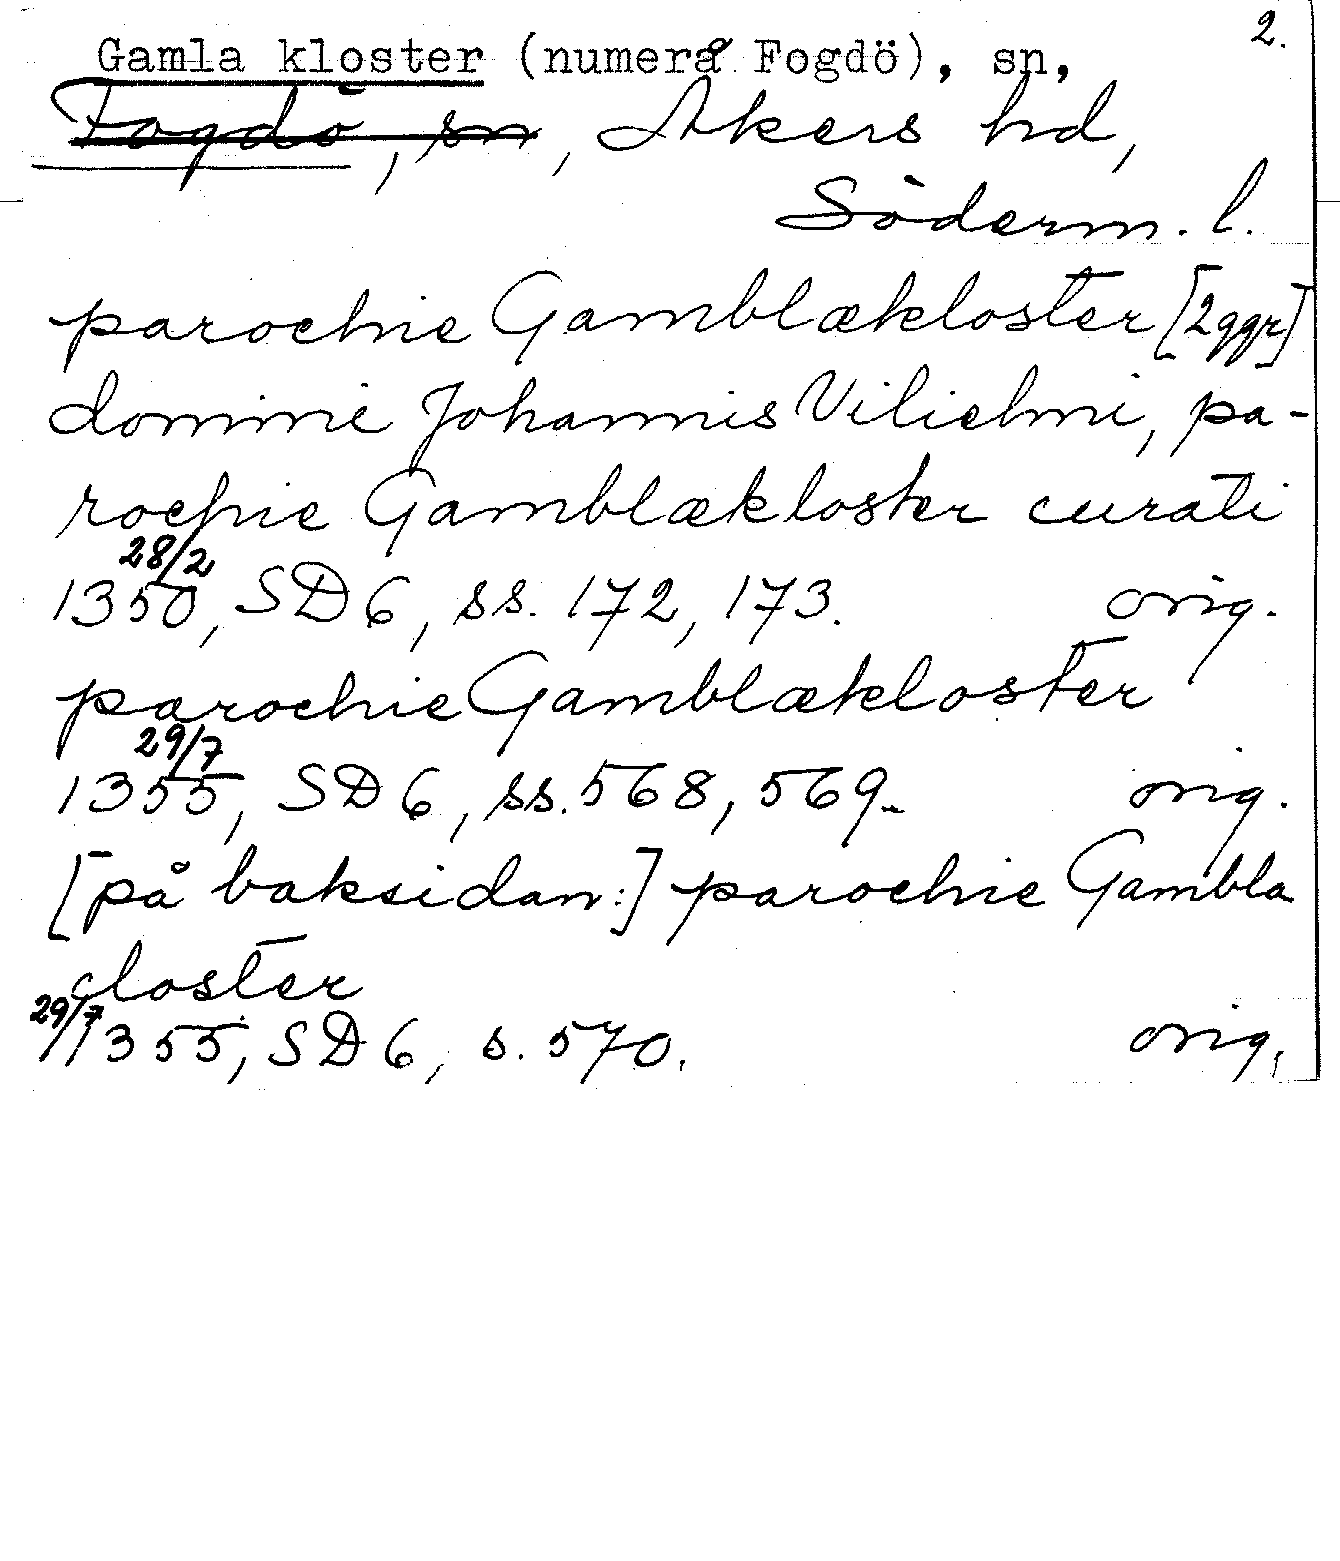 2.
Gamla kloster (numera Fogdö), sn,
Fogdö, sn, Åkers hd,
Söderm. l.
parochie Gamblækloster [2ggr]
domini Johannis Vilielmi, pa-
rochie Gamblækloster curati
28/2
1350, SD 6, ss. 172, 173. orig.
parochie Gamblækloster
29/7
1355, SD 6, ss. 568, 569. orig.
[på baksidan:] parochie Gambla
closter
29/7
1355, SD 6, s. 570. orig.